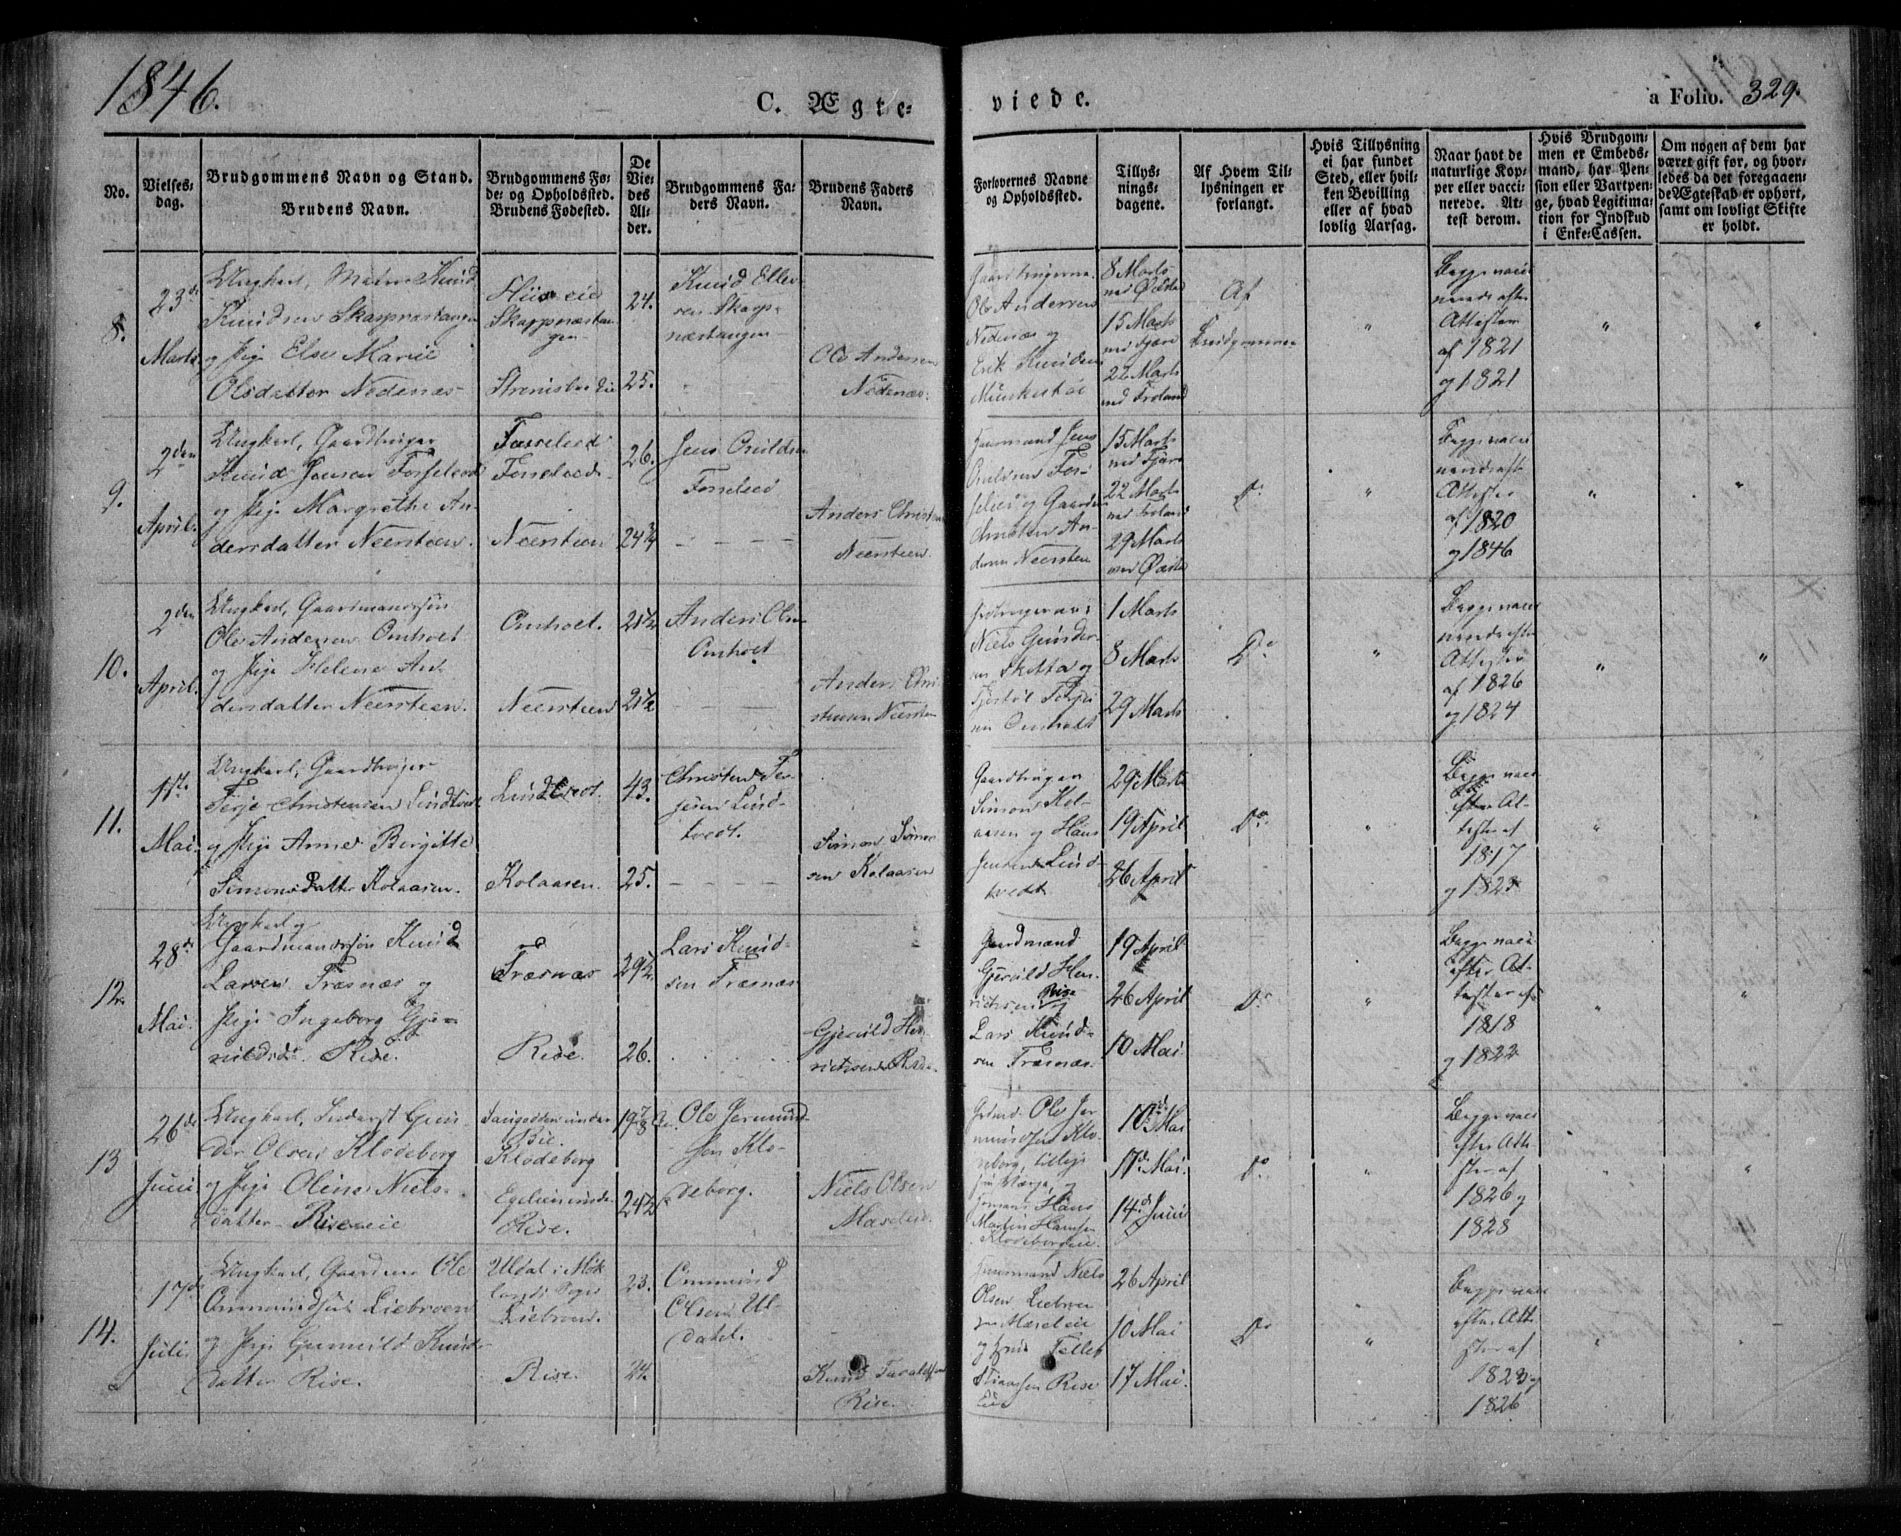 1846.
C. Ægte-
viede.
a Folio. 329.
No.
Vielses-
dag.
Brudgommens Navn og Stand.
Brudens Navn.
Brudgommens Fø-
de- og Opholdssted.
Brudens Fødested.
De
Vie-
des
Al-
der.
Brudgommens Fa-
ders Navn.
Brudens Faders
Navn.
Forlovernes Navne
og Opholdssted.
Tillys-
nings-
dagene.
Af Hvem Til-
lysningen er
forlangt.
Hvis Tillysning
ei har fundet
Sted, eller hvil-
ken Bevilling
eller af hvad
lovlig Aarsag.
Naar havt de
naturlige Kop-
per eller vacci-
nerede. At-
test derom.
Hvis Brudgom-
men er Embeds-
mand, har Pen-
sion eller Vartpen-
ge, hvad Legitima-
tion for Indskud
i Enke-Cassen.
Om nogen af dem har
været gift før, og hvor-
ledes da det foregaaen-
de Ægteskab er ophørt,
samt om lovligt Skifte
er holdt.
8.
23de
Marts
Ungkarl, Knud
Knudsen Skarpnæstangen
og Pige Else Marie
Olsdatter Nedenæs
24.
25.
Knud Ellev-
sen Skarp-
næstangen
Ole Andersen
Nedenæs.
Gaardbrugerne
Ole Andersen
Nedenæs og
Erik Knudsen
8 Marts
ved Øiestad
15 Marts
ved Fjære
22 Marts
ved Froland
Af
Brudgommen
Begge vacci
nerede efter
Attester
af 1821
og 1821
9.
2den
April.
Ungkarl, Gaardbruger
Knud Jensen
og Pige Margrethe An-
dersdatter Neersteen.
Neersteen
26.
24 3/4
Jens
Anders Christen
Neersteen.
Huusmand Jens
og Gaardm
Christen An-
dersen Neersteen
15 Marts
ved Fjære
22 Marts
ved Froland
29 Marts
ved Øiestad
Do
Begge vacci
nerede eft
Attester
af 1820
og 1846
10.
2den
April.
Ungkarl, Gaardmandssøn
Ole Andersen Omholt
og Pige Helene An-
dersdatter Neersteen.
Omholt.
Neersteen
21 1/2
21 1/2
Anders Ols
Omholt
Anders Chri-
stensen Neersteen
Niels Gunder-
sen og
sen Omholt
1 Marts
8 Marts
29 Marts
Do
Begge vacci
nerede efter
Attester
af 1826
og 1824
11.
1ste
Mai.
Ungkarl, Gaardbruger
Terje Christensen Lindtvedt
og Pige Anne Birgitte
Simonsdatter Kolaasen.
Lindtvedt.
Kolaasen.
43.
25.
Christen Ter-
jesen Lind-
tvedt.
Simon Simon
sen Kolaasen
Gaardbruger
Simon Kol-
aasen og Hans
Jensen Lind-
tvedt
29 Marts
19 April
26 April
Do
Begge vacci
efter At-
tester af
1817
og 1823
12.
28de
Mai.
Ungkarl og
Gaardmandssøn Knud
Larsen Træsnæs og
Pige Ingeborg Gjer-
uldsdt. Rise.
Træsnæs
Rise.
29 1/2
26.
Lars Knud-
sen Træsnæs
Gjeruld Hen-
richsen Rise
Gaardmand
Gjeruld Hen-
richsen Rise
Lars Knud-
sen Træsnæs.
19 April
26 April
10 Mai
Do
Begge vacci
efter At-
tester af
1818
og 1822
13
26de
Juni
Ungkarl, Inderst Gun-
der Olsen Klodeborg
og Pige Oline Niels-
datter Riseeie
under
Bie.
Klodeborg
under
Rise.
19 7/8
24 1/2
Ole Jermund-
sen Klo-
deborg.
Niels Olsen
Ole Jer
mundsen Klo-
deborg, tillige
og
Hans
Martin Hansen
Klodeborgeie.
10de Mai
17de Mai.
14de Juni
Do
Begge vacci
efter Atte
ster af
1826 og
1828
14.
17de
Juli.
Ungkarl, Gaardm Ole
Ommundsen Liebroen
og Pige Gunnild Knuds
datter Rise.
Uldal i
Sogn
Liebroen.
Rise.
23.
24.
Ommund
Olsen Ul-
dal.
Knud Taraldsen
Rise.
Huusmand Niels
Olsen Liebroen
og
Rise
26 April
10 Mai
17 Mai.
Do
Begge vacci
efter Atte
ster af
1823 og
1826